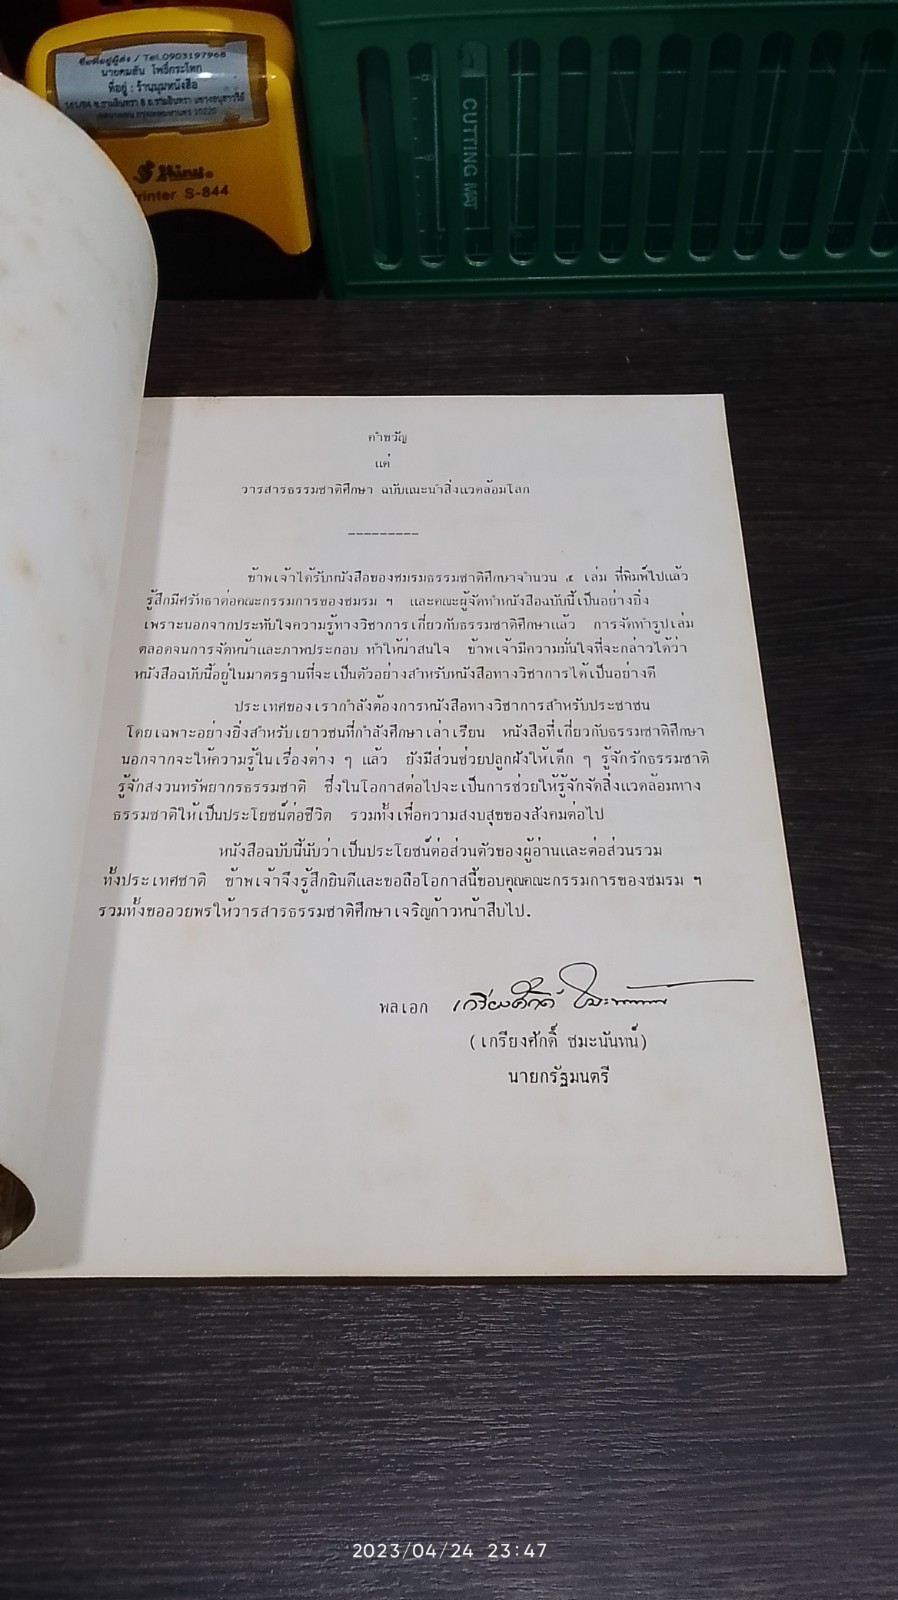 ชื่อที่อยู่ผู้ส่ง / Tel.0903197968
นายคมสัน โพธิ์กระโทก
ที่อยู่ : ร้านมุมหนังสือ
Shiny
Printer S-844
CUTTING MAT
คำขวัญ
แด่
วารสารธรรมชาติศึกษา ฉบับแนะนำสิ่งแวดล้อมโลก
---------
ข้าพเจ้าได้รับหนังสือของชมรมธรรมชาติศึกษาจำนวน ๕ เล่ม ที่พิมพ์ไปแล้ว
รู้สึกมีศรัทธาต่อคณะกรรมการของชมรม ฯ และคณะผู้จัดทำหนังสือฉบับนี้เป็นอย่างยิ่ง
เพราะนอกจากประทับใจความรู้ทางวิชาการเกี่ยวกับธรรมชาติศึกษาแล้ว การจัดทำรูปเล่ม
ตลอดจนการจัดหน้าและภาพประกอบ ทำให้น่าสนใจ ข้าพเจ้ามีความมั่นใจที่จะกล่าวได้ว่า
หนังสือฉบับนี้อยู่ในมาตรฐานที่จะเป็นตัวอย่างสำหรับหนังสือทางวิชาการได้เป็นอย่างดี
ประเทศของเรากำลังต้องการหนังสือทางวิชาการสำหรับประชาชน
โดยเฉพาะอย่างยิ่งสำหรับเยาวชนที่กำลังศึกษาเล่าเรียน หนังสือที่เกี่ยวกับธรรมชาติศึกษา
นอกจากจะให้ความรู้ในเรื่องต่าง ๆ แล้ว ยังมีส่วนช่วยปลูกฝังให้เด็ก ๆ รู้จักรักธรรมชาติ
รู้จักสงวนทรัพยากรธรรมชาติ ซึ่งในโอกาสต่อไปจะเป็นการช่วยให้รู้จักจัดสิ่งแวดล้อมทาง
ธรรมชาติให้เป็นประโยชน์ต่อชีวิต รวมทั้งเพื่อความสงบสุขของสังคมต่อไป
หนังสือฉบับนี้นับว่าเป็นประโยชน์ต่อส่วนตัวของผู้อ่านและต่อส่วนรวม
ทั้งประเทศชาติ ข้าพเจ้าจึงรู้สึกยินดีและขอถือโอกาสนี้ขอบคุณคณะกรรมการของชมรม ฯ
รวมทั้งขออวยพรให้วารสารธรรมชาติศึกษาเจริญก้าวหน้าสืบไป.
พลเอก เกรียงศักดิ์ ชมะนันทน์
(เกรียงศักดิ์ ชมะนันทน์)
นายกรัฐมนตรี
2023/04/24 23:47